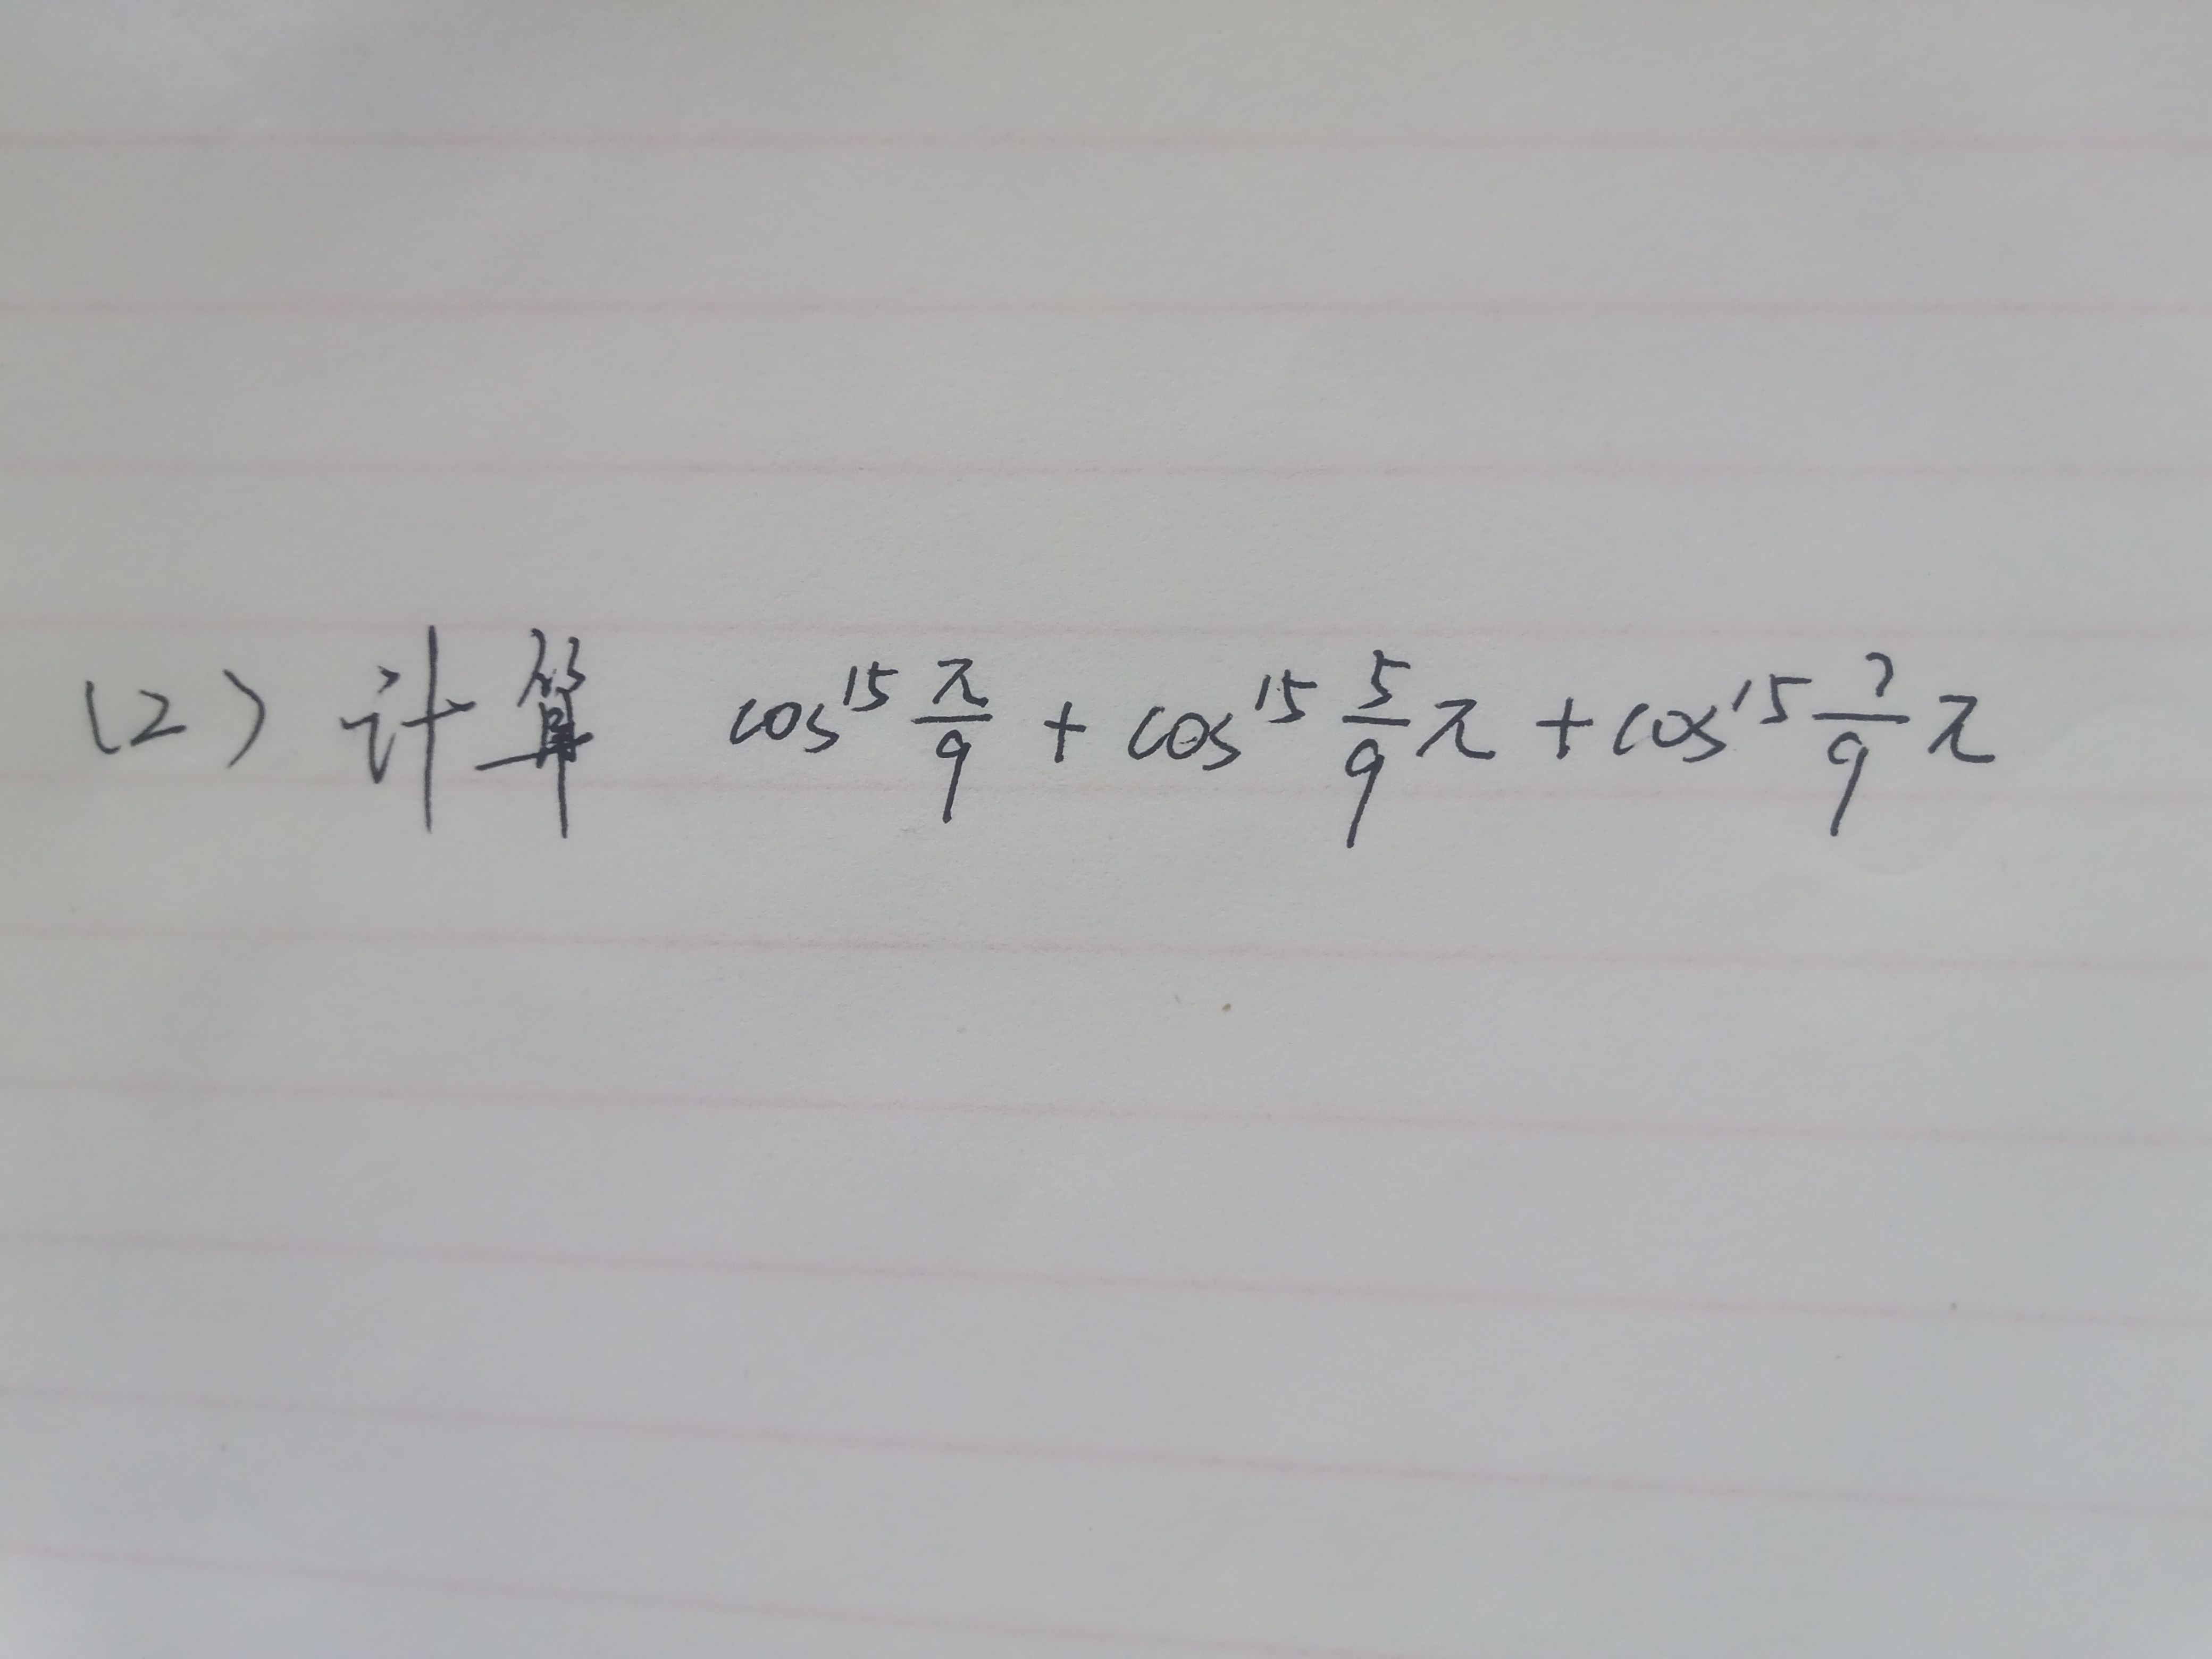 (2) 计算 cos^15 π/9 + cos^15 5/9 π + cos^15 7/9 π